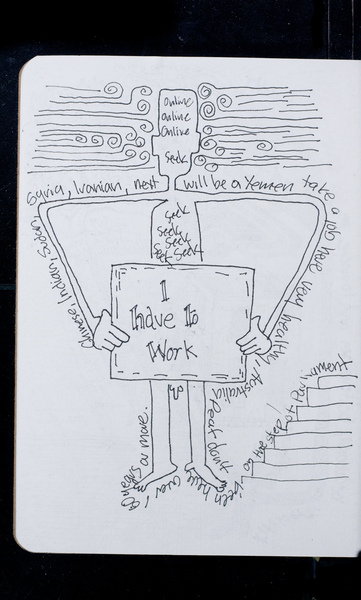 online
online
Online
seek
Syria, Iranian, next will be a Yemen take a job here very healthy, Australia
seek
seek
seek
seek
seek
Chinese, Indian, Sudan,
I
have to
Work
years or more.
dont
been have over
go the step of Parliment